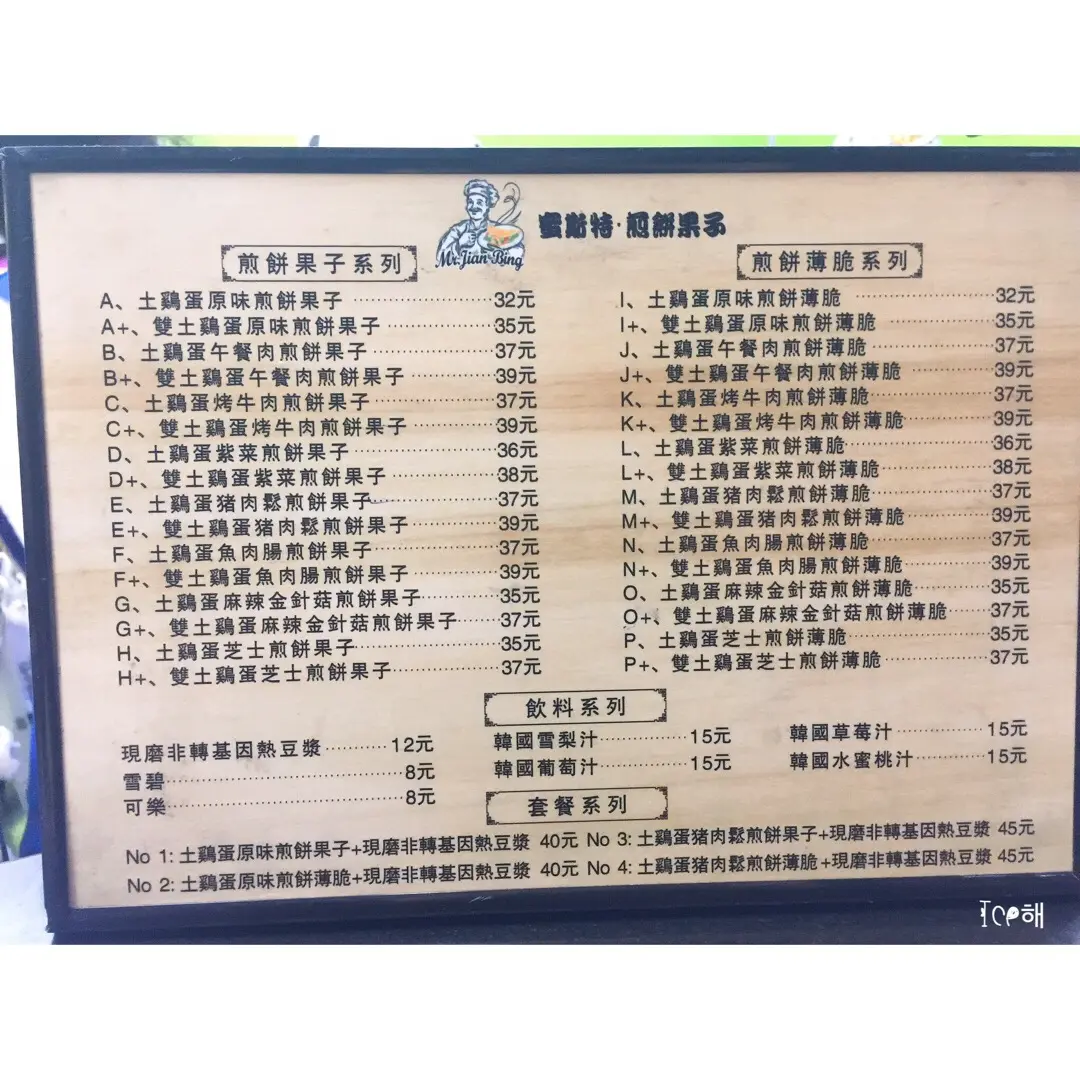 蜜斯特·煎餅果子
Mr.Jian Bing
煎餅果子系列
A、土鷄蛋原味煎餅果子 32元
A+、雙土鷄蛋原味煎餅果子 35元
B、土鷄蛋午餐肉煎餅果子 37元
B+、雙土鷄蛋午餐肉煎餅果子 39元
C、土鷄蛋烤牛肉煎餅果子 37元
C+、雙土鷄蛋烤牛肉煎餅果子 39元
D、土鷄蛋紫菜煎餅果子 36元
D+、雙土鷄蛋紫菜煎餅果子 38元
E、土鷄蛋猪肉鬆煎餅果子 37元
E+、雙土鷄蛋猪肉鬆煎餅果子 39元
F、土鷄蛋魚肉腸煎餅果子 37元
F+、雙土鷄蛋魚肉腸煎餅果子 39元
G、土鷄蛋麻辣金針菇煎餅果子 35元
G+、雙土鷄蛋麻辣金針菇煎餅果子 37元
H、土鷄蛋芝士煎餅果子 35元
H+、雙土鷄蛋芝士煎餅果子 37元
煎餅薄脆系列
I、土鷄蛋原味煎餅薄脆 32元
I+、雙土鷄蛋原味煎餅薄脆 35元
J、土鷄蛋午餐肉煎餅薄脆 37元
J+、雙土鷄蛋午餐肉煎餅薄脆 39元
K、土鷄蛋烤牛肉煎餅薄脆 37元
K+、雙土鷄蛋烤牛肉煎餅薄脆 39元
L、土鷄蛋紫菜煎餅薄脆 36元
L+、雙土鷄蛋紫菜煎餅薄脆 38元
M、土鷄蛋猪肉鬆煎餅薄脆 37元
M+、雙土鷄蛋猪肉鬆煎餅薄脆 39元
N、土鷄蛋魚肉腸煎餅薄脆 37元
N+、雙土鷄蛋魚肉腸煎餅薄脆 39元
O、土鷄蛋麻辣金針菇煎餅薄脆 35元
O+、雙土鷄蛋麻辣金針菇煎餅薄脆 37元
P、土鷄蛋芝士煎餅薄脆 35元
P+、雙土鷄蛋芝士煎餅薄脆 37元
飲料系列
現磨非轉基因熱豆漿 12元
雪碧 8元
可樂 8元
韓國雪梨汁 15元
韓國葡萄汁 15元
韓國草莓汁 15元
韓國水蜜桃汁 15元
套餐系列
No 1: 土鷄蛋原味煎餅果子+現磨非轉基因熱豆漿 40元
No 2: 土鷄蛋原味煎餅薄脆+現磨非轉基因熱豆漿 40元
No 3: 土鷄蛋猪肉鬆煎餅果子+現磨非轉基因熱豆漿 45元
No 4: 土鷄蛋猪肉鬆煎餅薄脆+現磨非轉基因熱豆漿 45元